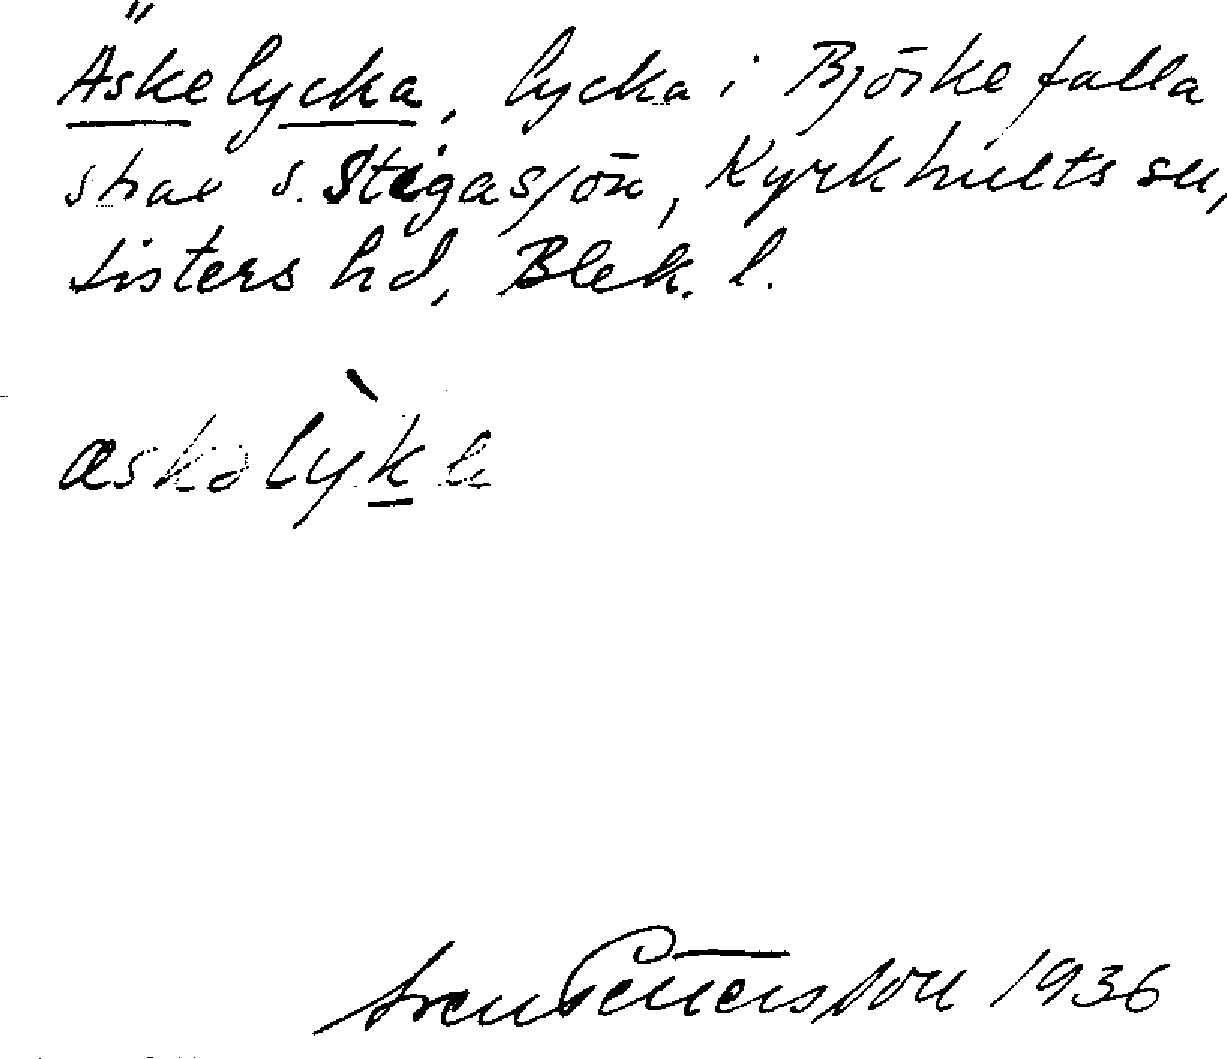 Äskelycka, lycka i Björkefalla
strax s. Stigasjön, Kyrkhults sn,
Listers hd, Blek. l.
æskəlỳka
Sven Pettersson 1936